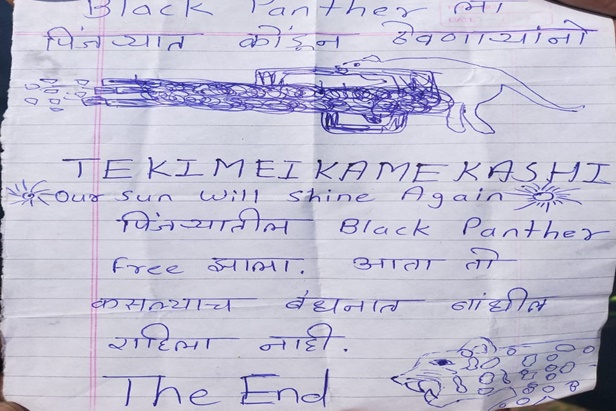 Black Panther ला
पिंजऱ्यात कोंडून ठेवणाऱ्यांनो
TEKIMEIKAMEKASHI
Our Sun will shine Again
पिंजऱ्यातील Black Panther
Free झाला. आता तो
कसल्याच बंधनात बांधील
राहिला नाही.
The End